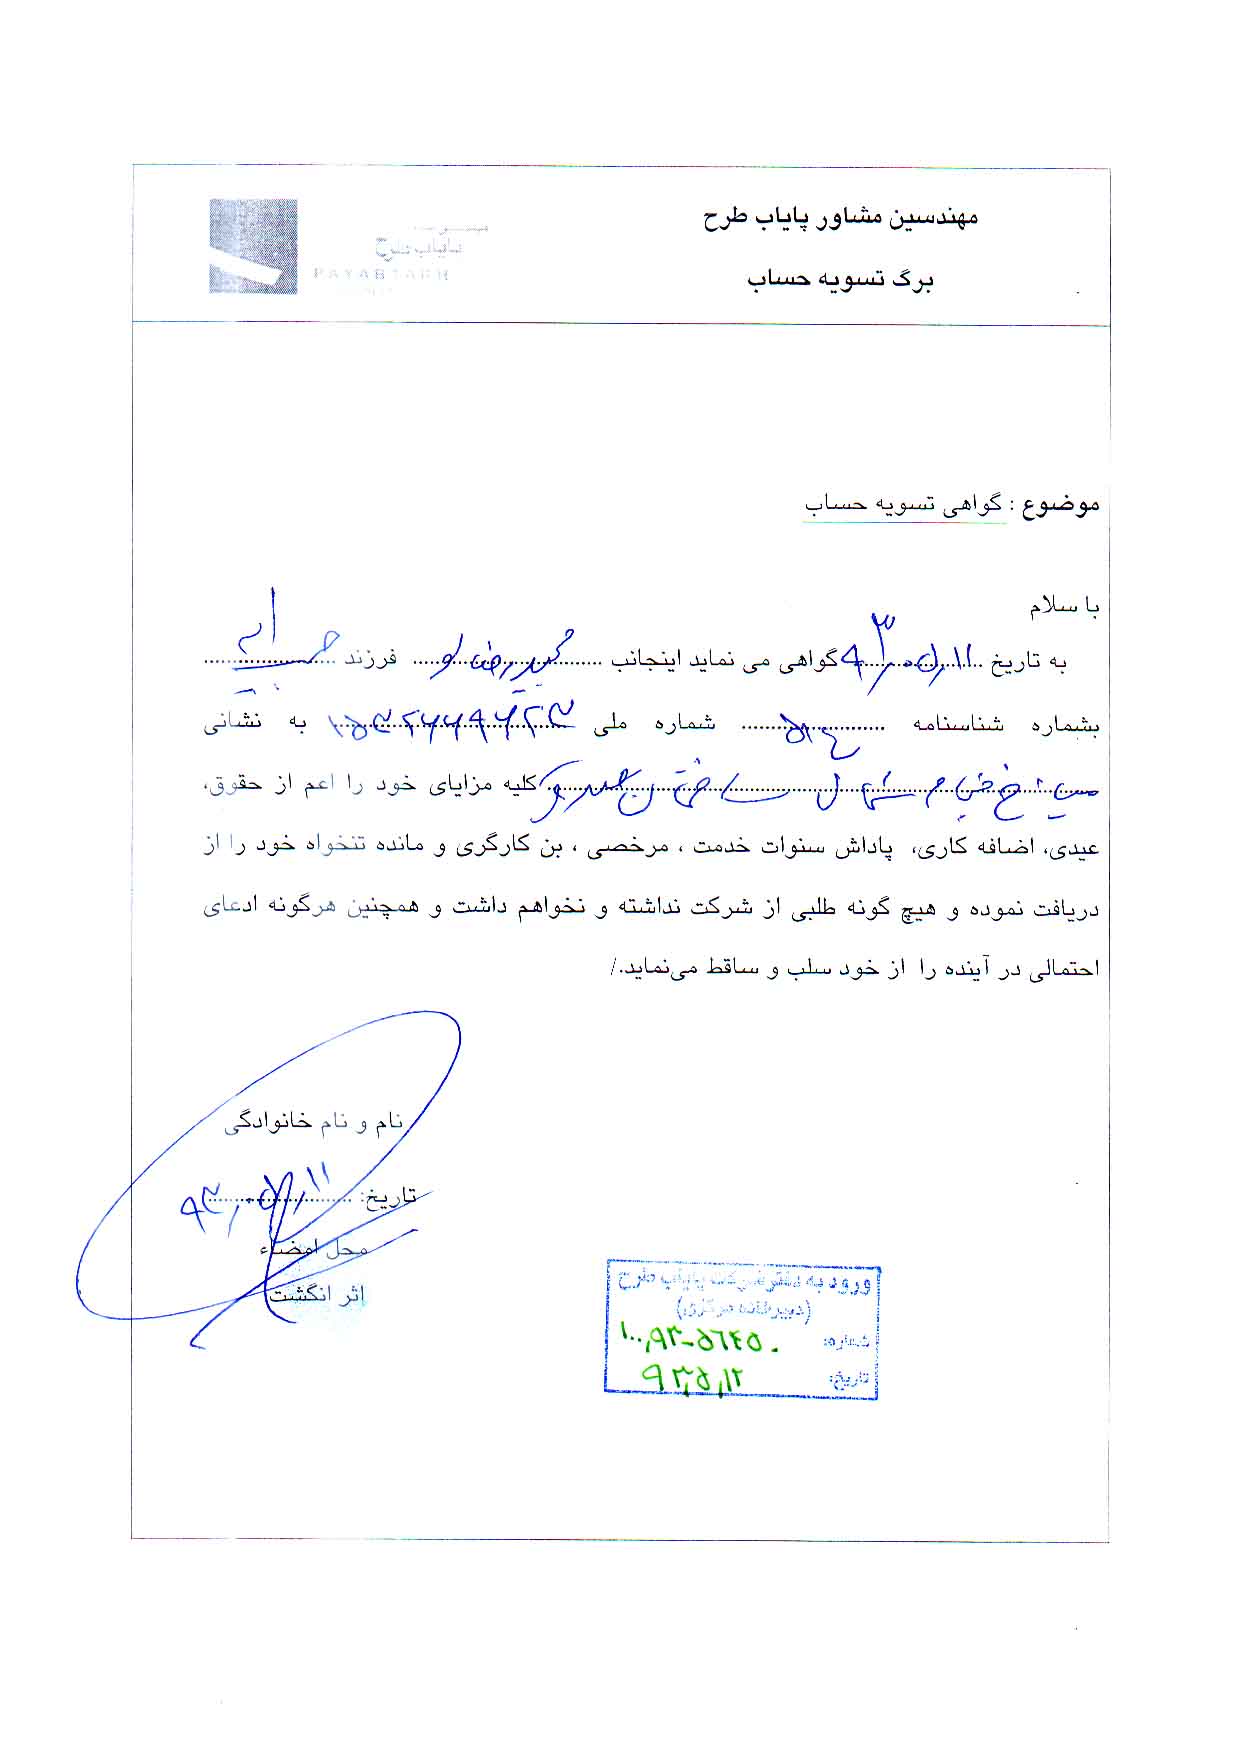 مهندسین مشاور پایاب طرح
برگ تسویه حساب
پایاب طرح
PAYABTARH
موضوع : گواهی تسویه حساب
با سلام
به تاریخ ۹۳/۰۵/۱۱ گواهی می نماید اینجانب فرزند
بشماره شناسنامه شماره ملی به نشانی
کلیه مزایای خود را اعم از حقوق،
عیدی، اضافه کاری، پاداش سنوات خدمت ، مرخصی ، بن کارگری و مانده تنخواه خود را از
دریافت نموده و هیچ گونه طلبی از شرکت نداشته و نخواهم داشت و همچنین هرگونه ادعای
احتمالی در آینده را از خود سلب و ساقط می‌نماید./
نام و نام خانوادگی
تاریخ: ۹۳/۰۵/۱۱
محل امضاء
اثر انگشت
ورود به دفتر شرکت پایاب طرح
(دبیرخانه مرکزی)
شماره: ۱۰۰/۹۳-۵۶۴۵۰
تاریخ: ۹۳/۵/۱۲